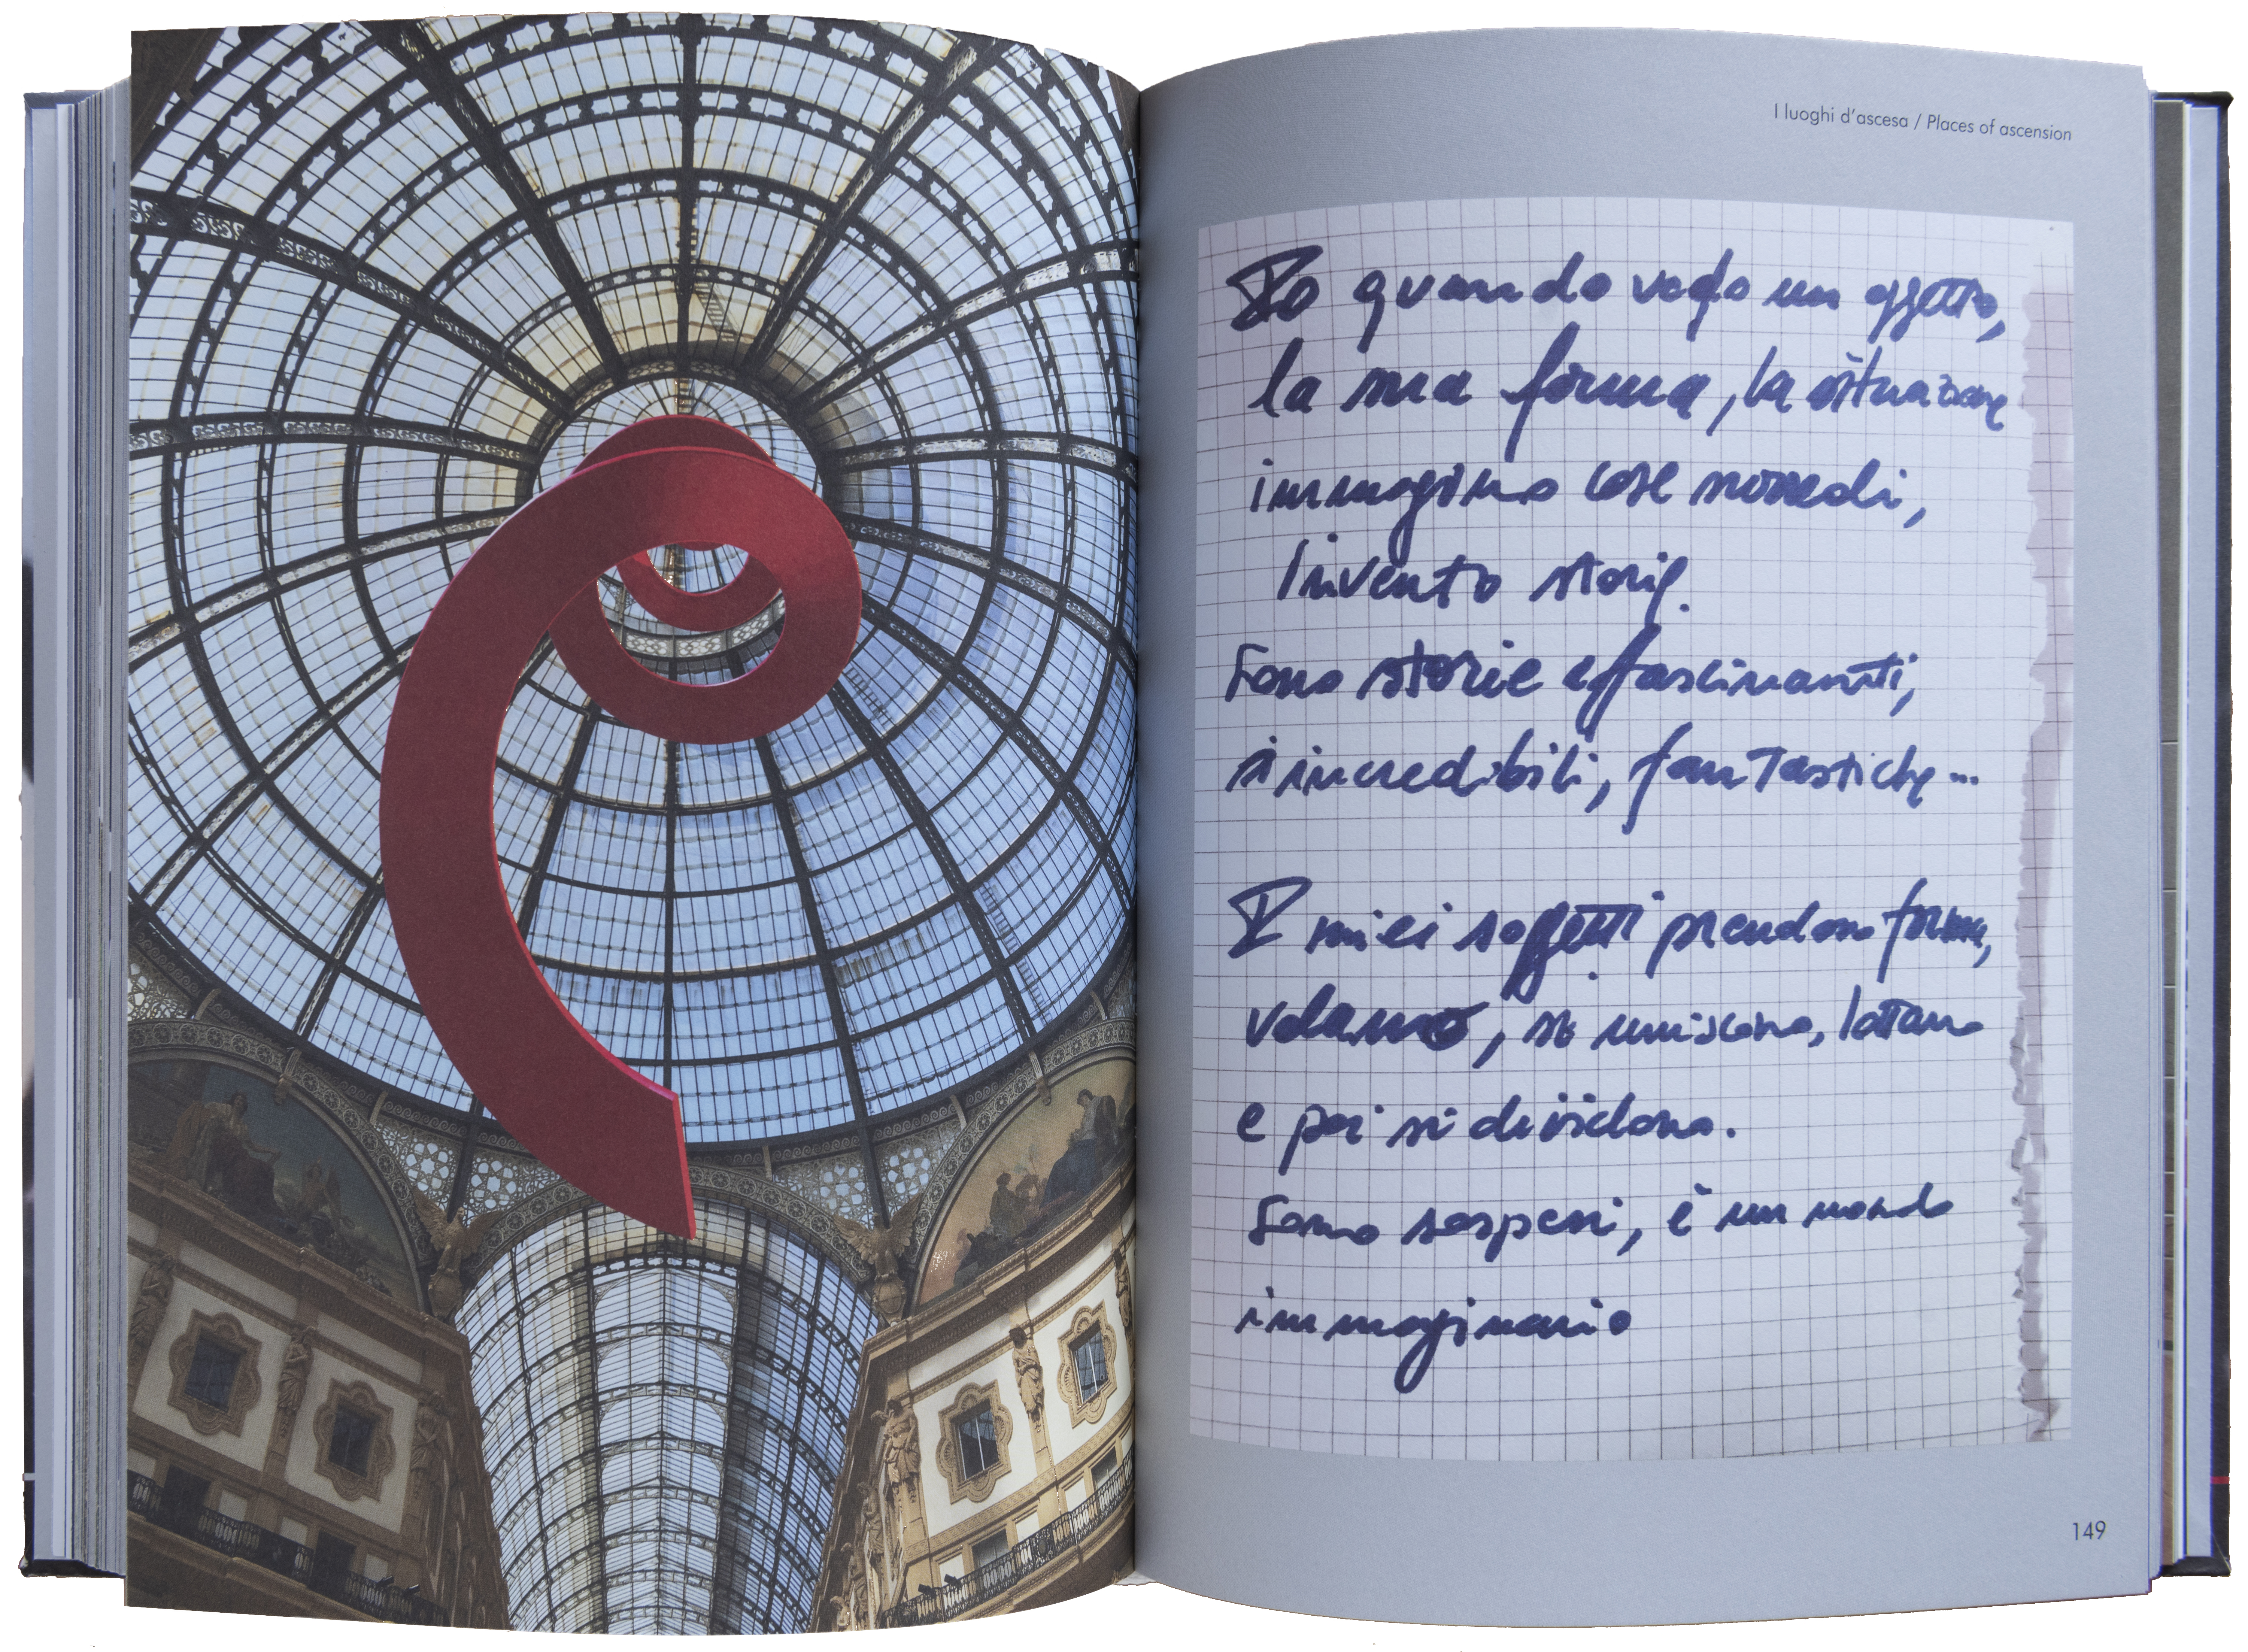 I luoghi d'ascesa / Places of ascension
Io quando vedo un oggetto,
la sua forma, la situazione
immagino cose
Invento storie.
Sono storie affascinanti,
incredibili, fantastiche...
I miei soggetti prendono forma,
volano, si uniscono, lottano
e poi si dividono.
Sono sospesi, è un mondo
immaginario
149